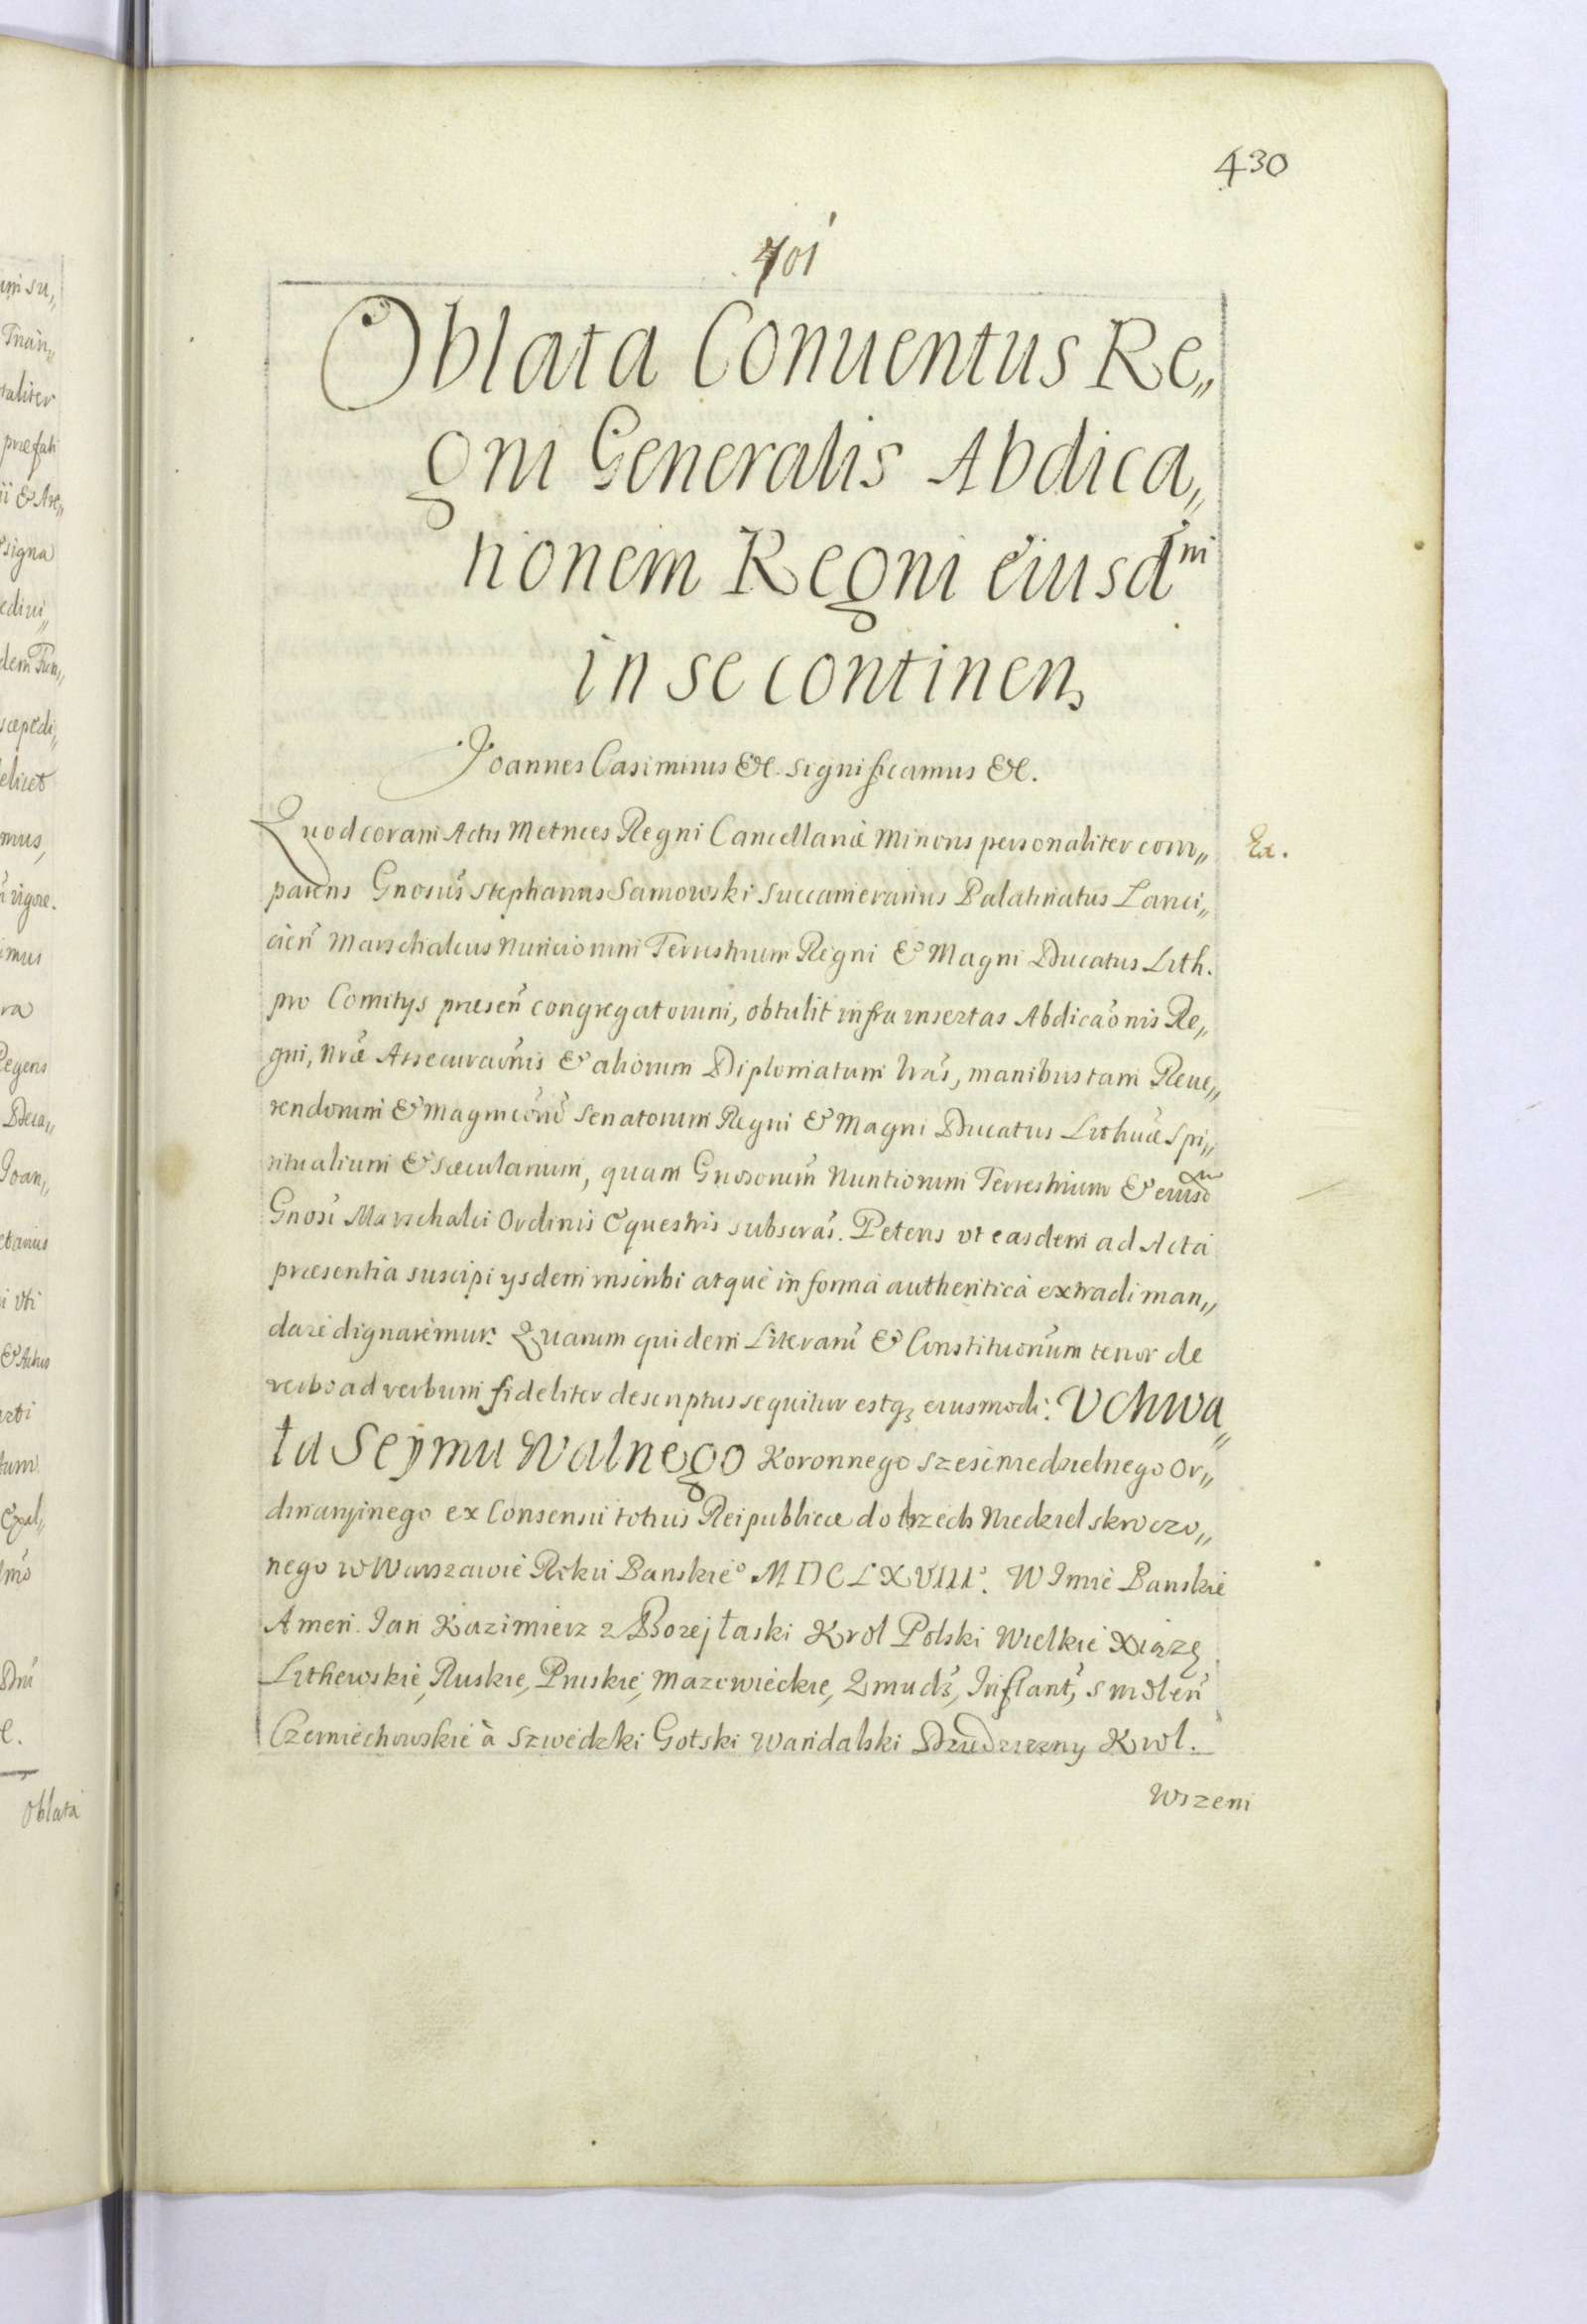 430
401
Oblata Conuentus Re„
gni Generalis Abdica„
tionem Regni eiusdm
in se continen,
Joannes Casimirus &c. significamus &c.
Quod coram Actis Metrices Regni Cancellariæ Minoris personaliter com„
Ex.
parens Gnosus Stephanus Sarnowski Succamerarius Palatinatus Lanci„
cień Marschalcus Nunciorum Terrestrium Regni & Magni Ducatus Lith.
pro Comitys præseñ congregatorum, obtulit infra insertas Abdicaõnis Re„
gni, nræ Assecuraõnis & aliorum Diplomatum lras, manibus tam Reue„
rendorum & Magnicorũ Senatorum Regni & Magni Ducatus Lithuæ Spi„
ritualium & Sæcularium, quam Gnosorum Nuntiorum Terrestrium & eiusdm
Gnosi Marschalci Ordinis Equestris subscras. Petens vt easdem ad Acta
præsentia suscipi ysdem inscribi atque in forma authentica extradi man„
dare dignaremur. Quarum quidem Literarũ & Constitucionum tenor de
verbo ad verbum fideliter descriptus sequitur estq; eiusmodi. Vchwa„
ła Seymu Walnego Koronnego szescniedzielnego Or„
dinaryinego ex Consensu totius Reipublicæ do trzech Niedziel skroczo„
nego w Warszawie Roku Panskieº MDCLXVIIIº. W Imie Panskie
Amen. Jan Kazimierz z Bozej łaski Krol Polski Wielkie Xiąże
Lithewskie, Ruskie, Pruskie, Mazowieckie, Zmudz, Inflant, Smoleñ
Czerniechowskie à Szwedzki Gotski Wandalski Dziedziczny Krol.
Wszem